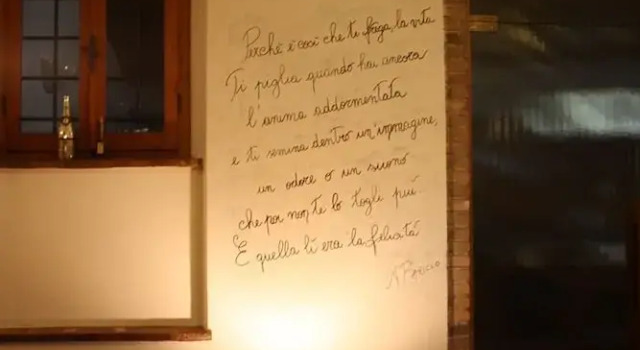 Perché è così che ti frega, la vita
Ti piglia quando hai ancora
l'anima addormentata
e ti semina dentro un'immagine,
un odore o un suono
che poi non te lo togli più
E quella lì era la felicità